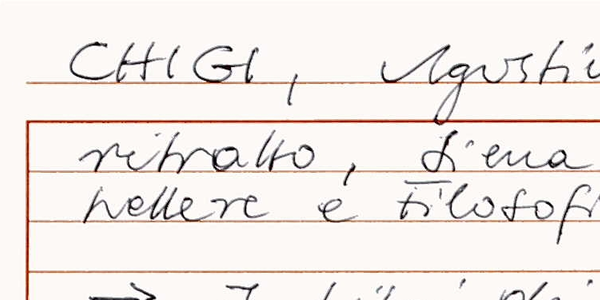 CHIGI, Agosti
ritratto, Siena
Lettere e Filosofi
→